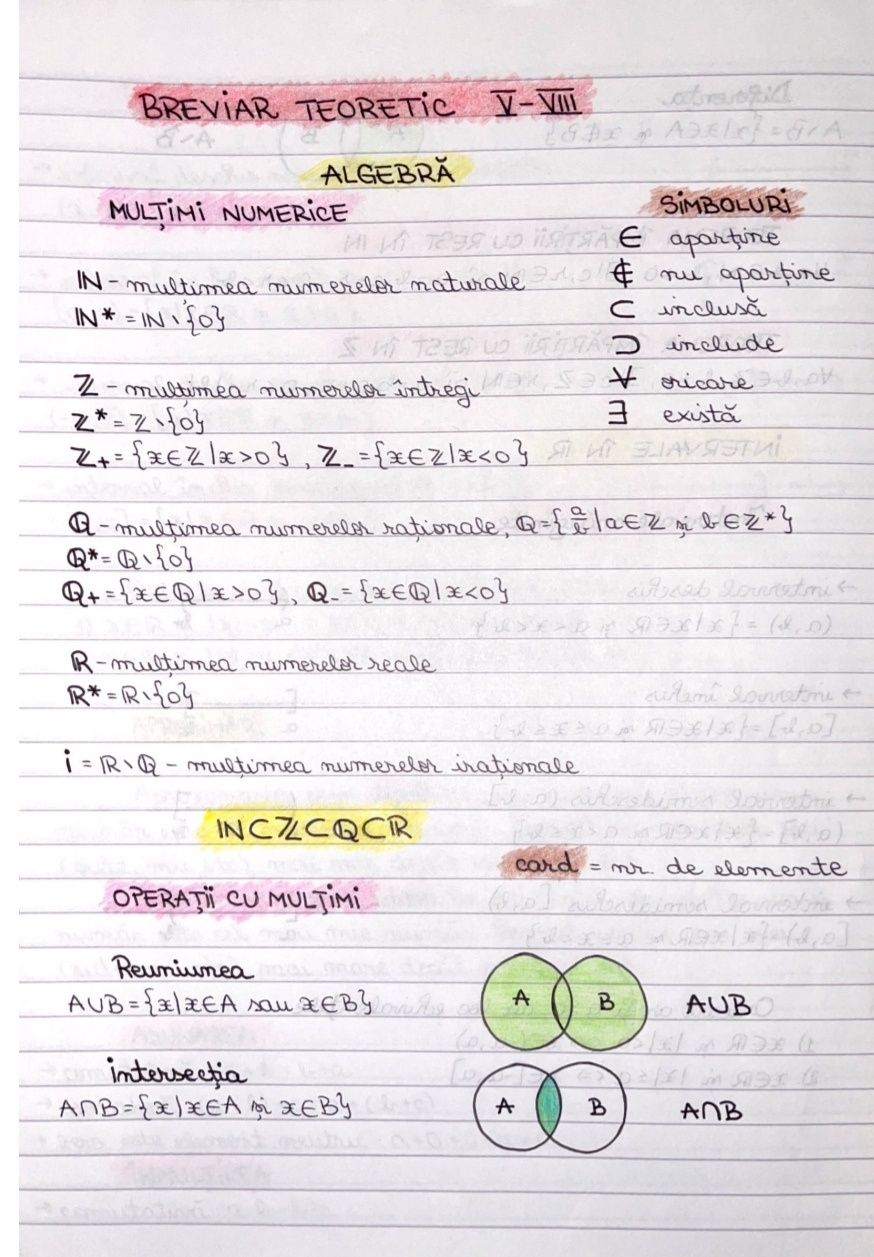 BREVIAR TEORETIC V-VIII
ALGEBRĂ
MULȚIMI NUMERICE
SIMBOLURI
∈ aparține
∉ nu aparține
⊂ inclusă
⊃ include
∀ oricare
∃ există
ℕ - mulțimea numerelor naturale
ℕ* = ℕ \ {0}
ℤ - mulțimea numerelor întregi
ℤ* = ℤ \ {0}
ℤ₊ = {x∈ℤ | x>0}, ℤ₋ = {x∈ℤ | x<0}
ℚ - mulțimea numerelor raționale, ℚ = {a/b | a∈ℤ și b∈ℤ*}
ℚ* = ℚ \ {0}
ℚ₊ = {x∈ℚ | x>0}, ℚ₋ = {x∈ℚ | x<0}
ℝ - mulțimea numerelor reale
ℝ* = ℝ \ {0}
i = ℝ \ ℚ - mulțimea numerelor iraționale
ℕ⊂ℤ⊂ℚ⊂ℝ
card = nr. de elemente
OPERAȚII CU MULȚIMI
Reuniunea
A∪B = {x | x∈A sau x∈B}
A B A∪B
intersecția
A∩B = {x | x∈A și x∈B}
A B A∩B